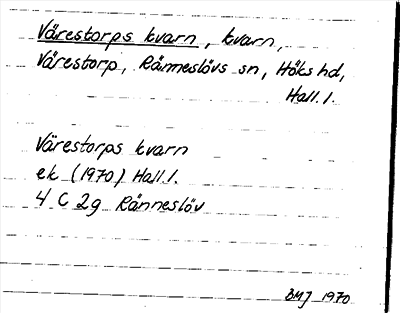 Värestorps kvarn, kvarn,
Värestorp, Ränneslövs sn, Höks hd,
Hall.l.
Värestorps kvarn
ek (1970) Hall.l.
4 C 2g Ränneslöv
BMJ 1970